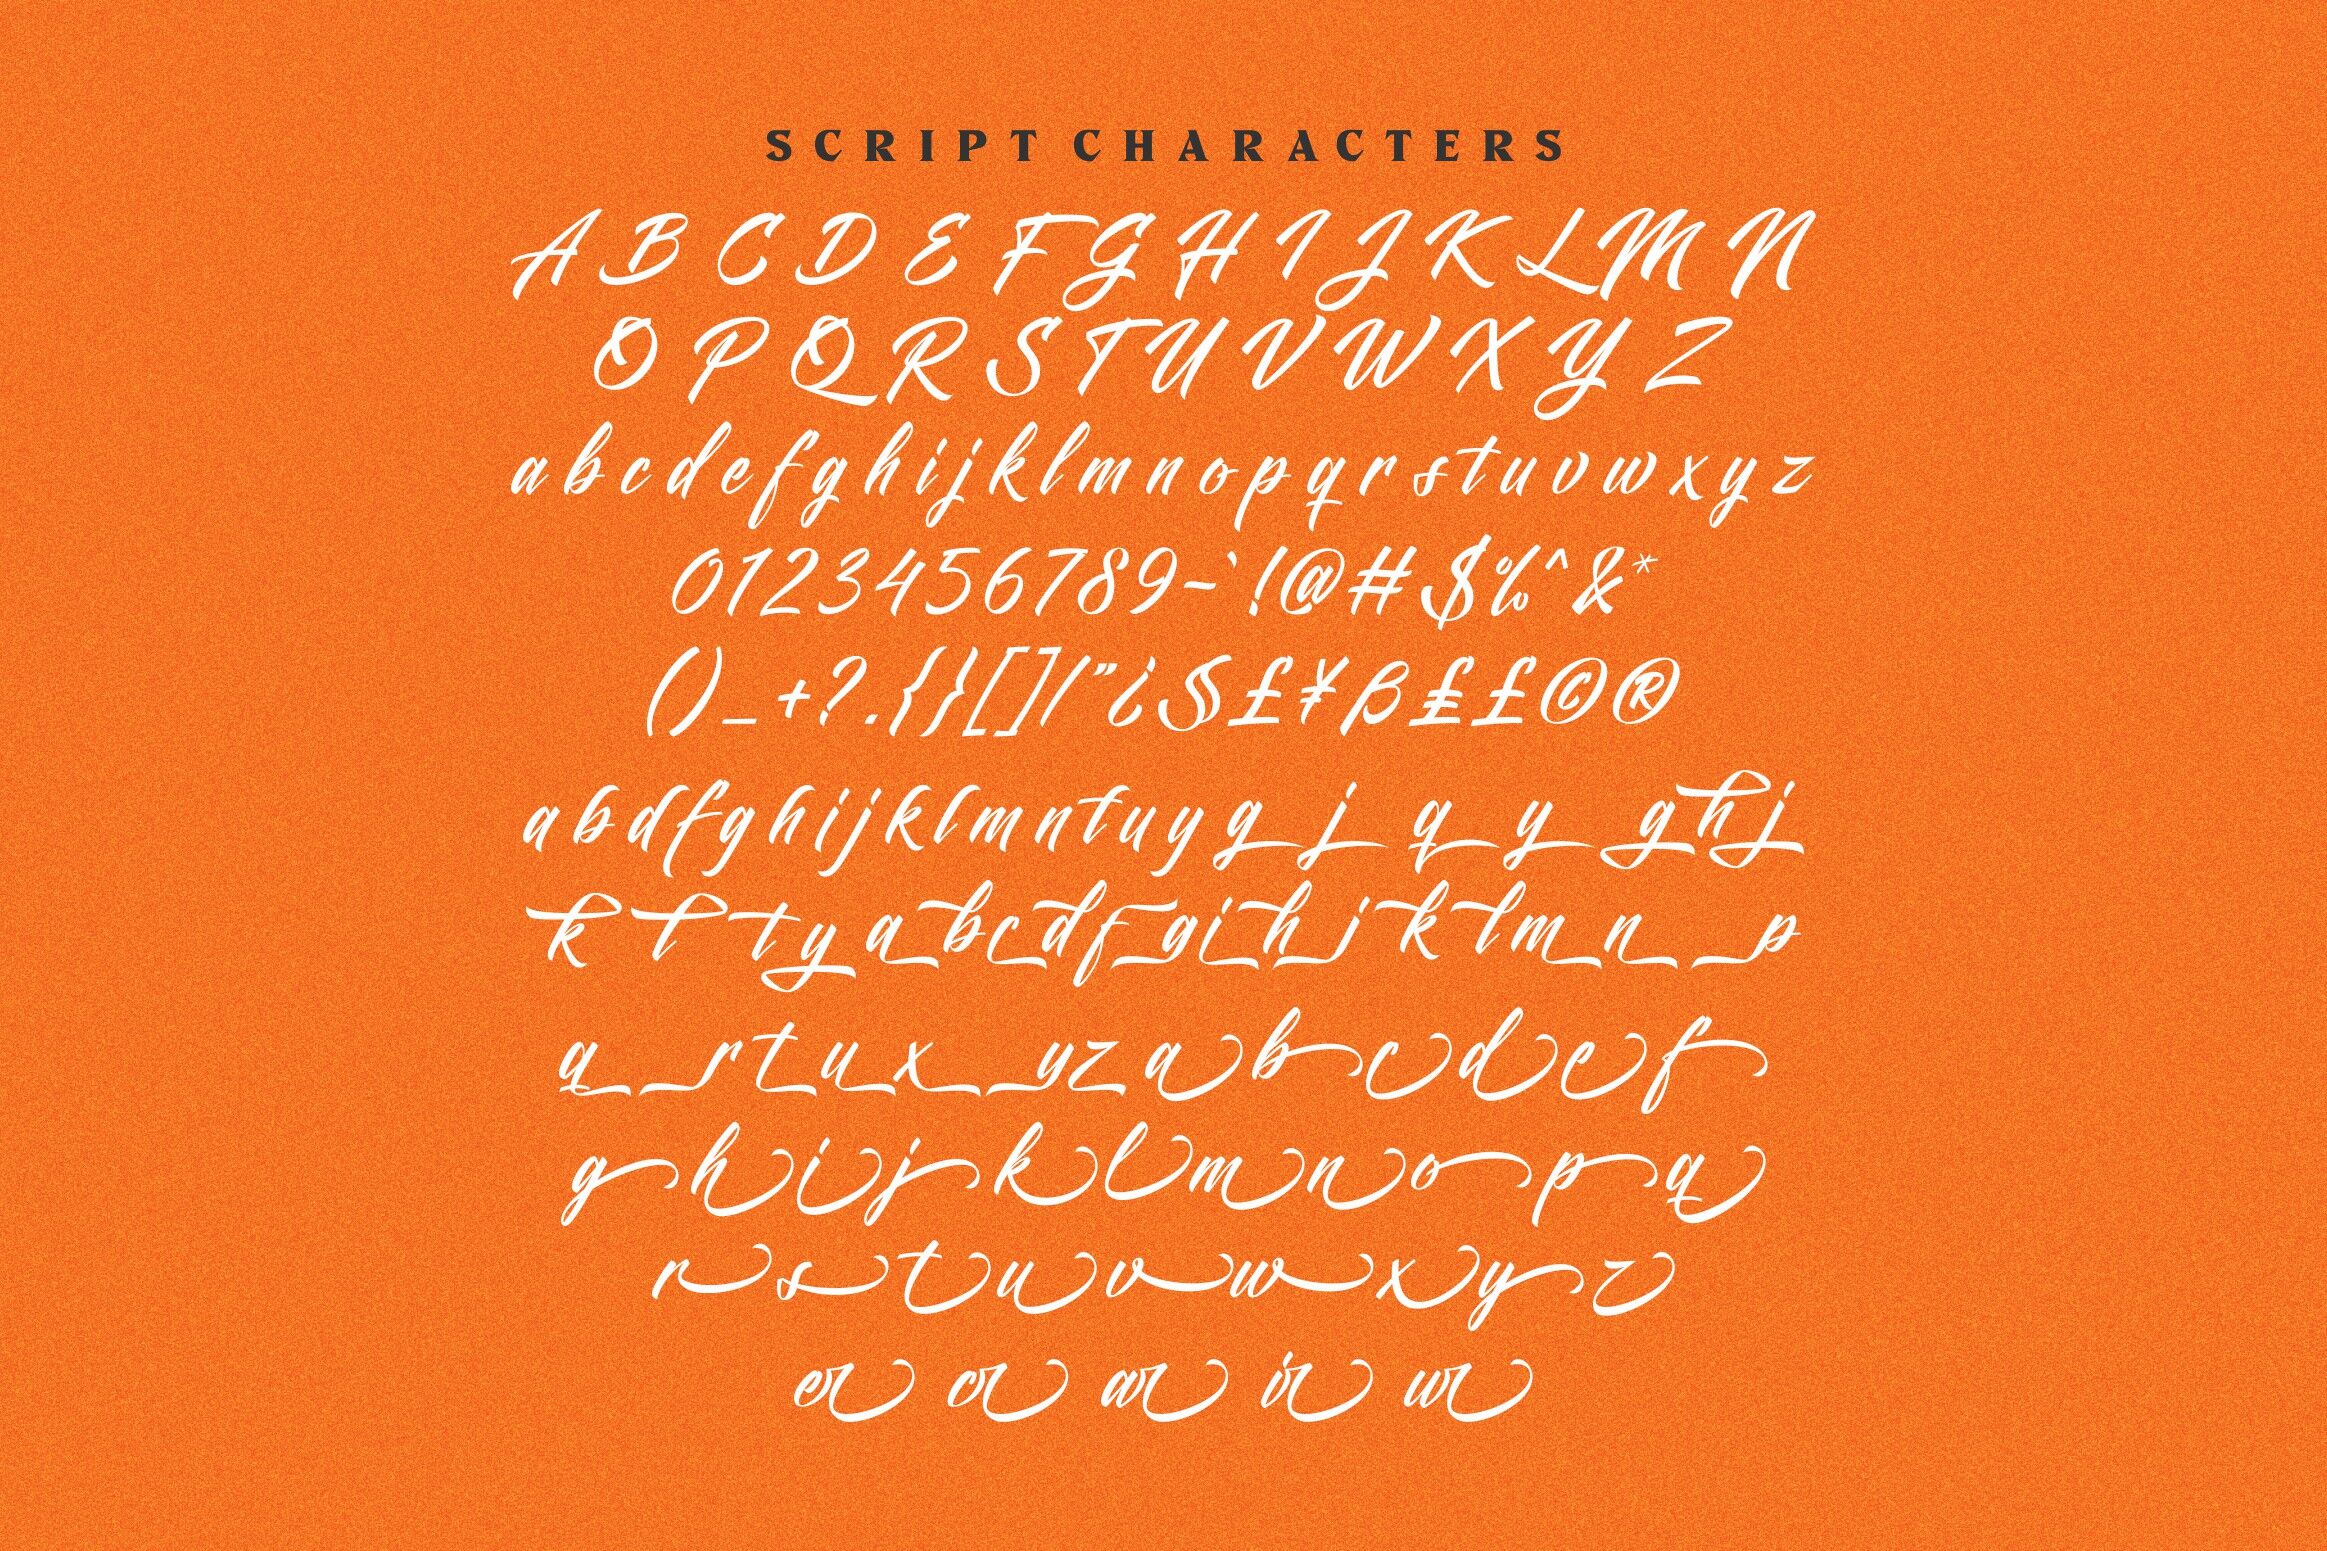 SCRIPT CHARACTERS
A B C D E F G H I J K L M N
O P Q R S T U V W X Y Z
a b c d e f g h i j k l m n o p q r s t u v w x y z
0 1 2 3 4 5 6 7 8 9 - ` ! @ # $ % ^ & *
( ) _ + ? . { } [ ] / " ¿ § £ ¥ β ₤ £ © ®
a b d f g h i j k l m n t u y g j q y g h j
k l t y a b c d f g i h j k l m n p
q r t u x y z a b c d e f
g h i j k l m n o p q
r s t u v w x y z
er cr ar ir ur